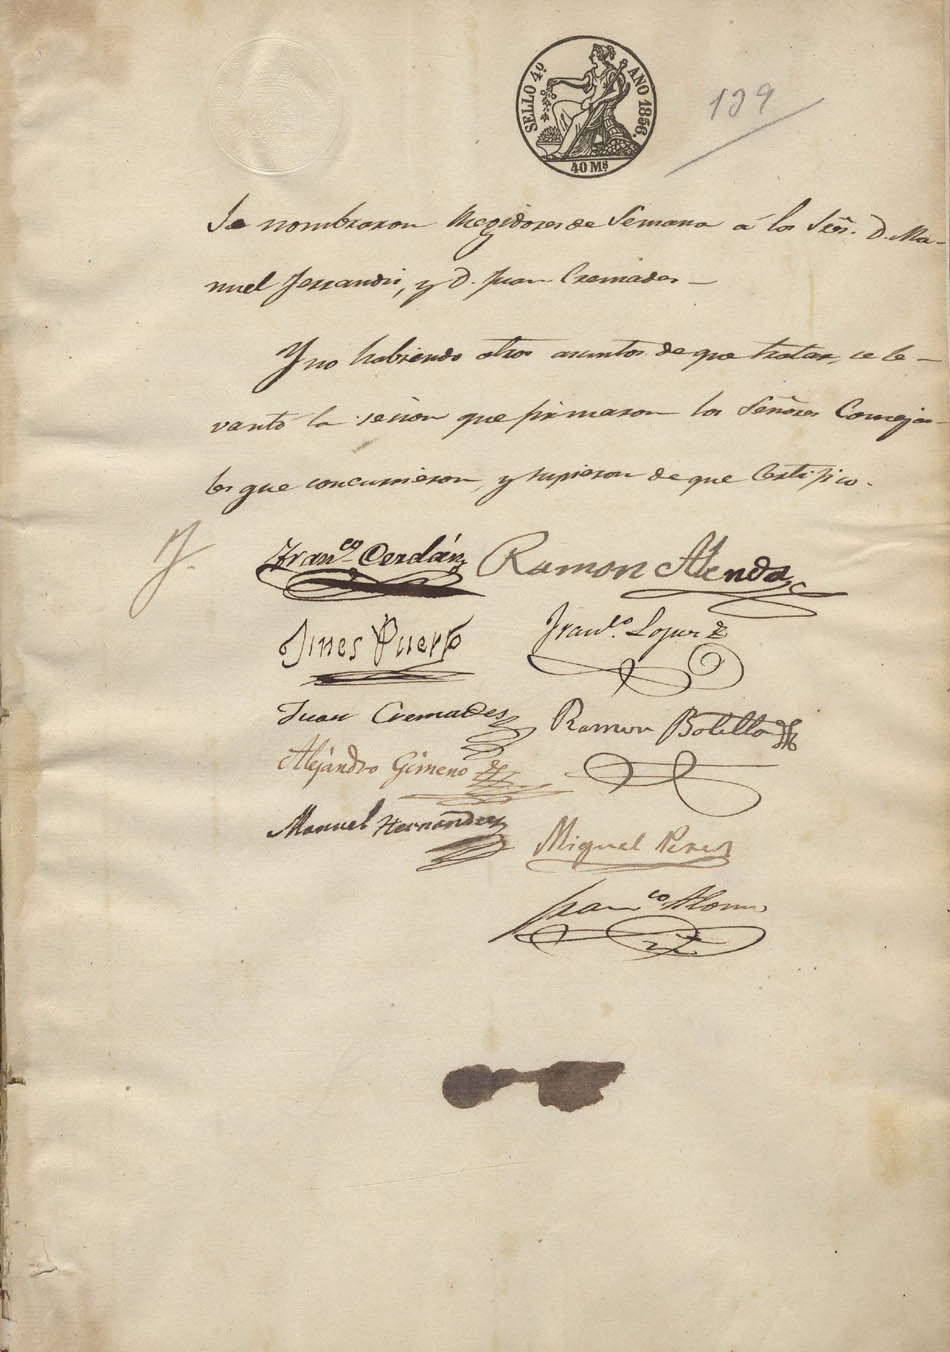 SELLO 4º AÑO 1856.
40 Ms
129
Se nombraron Regidores de Semana á los Sres. D. Ma-
nuel Ferrandis, y D. Juan Cremades.—
Y no habiendo otros asuntos de que tratar, se le-
vantó la sesion que firmaron los Señores Conceja-
les que concurrieron, y supieron de que Certifico.
Franco Cerdán Ramon Alenda
Jines Puerto Franco. Lopez
Juan Cremades Ramon Botella
Alejandro Gimeno
Manuel Hernandez Miguel Perez
Franco Alonso